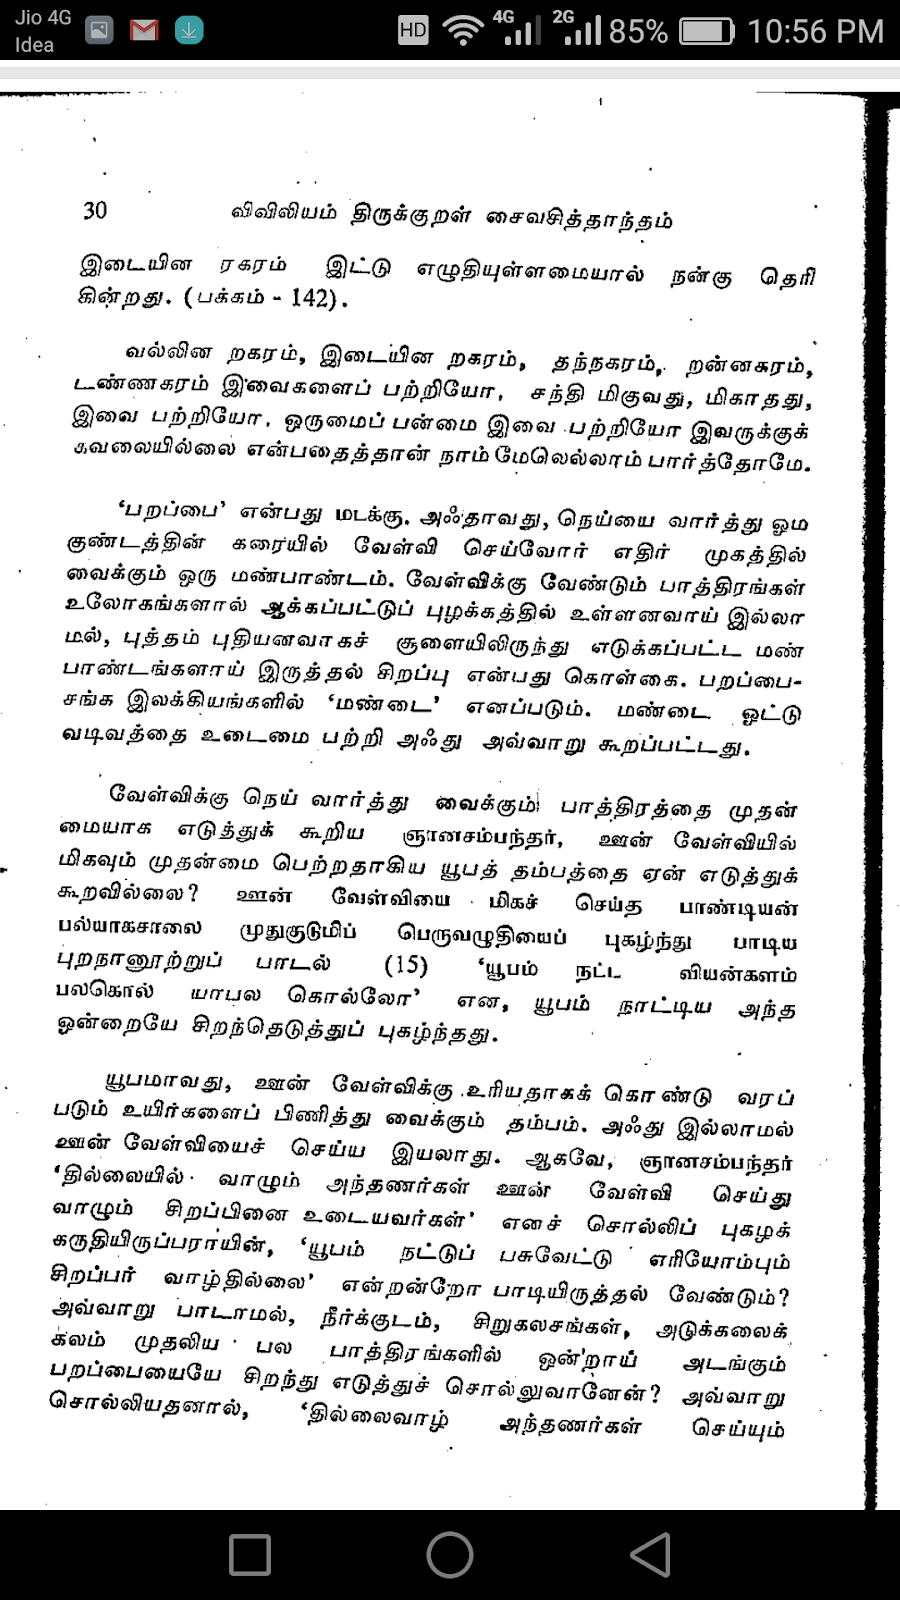 Jio 4G
Idea
HD 4G 2G 85% 10:56 PM
30 விவிலியம் திருக்குறள் சைவசித்தாந்தம்
இடையின ரகரம் இட்டு எழுதியுள்ளமையால் நன்கு தெரி
கின்றது. (பக்கம் - 142).
வல்லின றகரம், இடையின றகரம், தந்நகரம், றன்னகரம்,
டண்ணகரம் இவைகளைப் பற்றியோ, சந்தி மிகுவது, மிகாதது,
இவை பற்றியோ, ஒருமைப் பன்மை இவை பற்றியோ இவருக்குக்
கவலையில்லை என்பதைத்தான் நாம் மேலெல்லாம் பார்த்தோமே.
‘பறப்பை’ என்பது மடக்கு. அஃதாவது, நெய்யை வார்த்து ஓம
குண்டத்தின் கரையில் வேள்வி செய்வோர் எதிர் முகத்தில்
வைக்கும் ஒரு மண்பாண்டம். வேள்விக்கு வேண்டும் பாத்திரங்கள்
உலோகங்களால் ஆக்கப்பட்டுப் புழக்கத்தில் உள்ளனவாய் இல்லா
மல், புத்தம் புதியனவாகச் சூளையிலிருந்து எடுக்கப்பட்ட மண்
பாண்டங்களாய் இருத்தல் சிறப்பு என்பது கொள்கை. பறப்பை-
சங்க இலக்கியங்களில் ‘மண்டை’ எனப்படும். மண்டை ஓட்டு
வடிவத்தை உடைமை பற்றி அஃது அவ்வாறு கூறப்பட்டது.
வேள்விக்கு நெய் வார்த்து வைக்கும் பாத்திரத்தை முதன்
மையாக எடுத்துக் கூறிய ஞானசம்பந்தர், ஊன் வேள்வியில்
மிகவும் முதன்மை பெற்றதாகிய யூபத் தம்பத்தை ஏன் எடுத்துக்
கூறவில்லை? ஊன் வேள்வியை மிகச் செய்த பாண்டியன்
பல்யாகசாலை முதுகுடுமிப் பெருவழுதியைப் புகழ்ந்து பாடிய
புறநானூற்றுப் பாடல் (15) ‘யூபம் நட்ட வியன்களம்
பலகொல் யாபல கொல்லோ’ என, யூபம் நாட்டிய அந்த
ஒன்றையே சிறந்தெடுத்துப் புகழ்ந்தது.
யூபமாவது, ஊன் வேள்விக்கு உரியதாகக் கொண்டு வரப்
படும் உயிர்களைப் பிணித்து வைக்கும் தம்பம். அஃது இல்லாமல்
ஊன் வேள்வியைச் செய்ய இயலாது. ஆகவே, ஞானசம்பந்தர்
‘தில்லையில் வாழும் அந்தணர்கள் ஊன் வேள்வி செய்து
வாழும் சிறப்பினை உடையவர்கள்’ எனச் சொல்லிப் புகழக்
கருதியிருப்பராயின், ‘யூபம் நட்டுப் பசுவேட்டு எரியோம்பும்
சிறப்பர் வாழ்தில்லை’ என்றன்றோ பாடியிருத்தல் வேண்டும்?
அவ்வாறு பாடாமல், நீர்க்குடம், சிறுகலசங்கள், அடுக்கலைக்
கலம் முதலிய பல பாத்திரங்களில் ஒன்றாய் அடங்கும்
பறப்பையையே சிறந்து எடுத்துச் சொல்லுவானேன்? அவ்வாறு
சொல்லியதனால், ‘தில்லைவாழ் அந்தணர்கள் செய்யும்